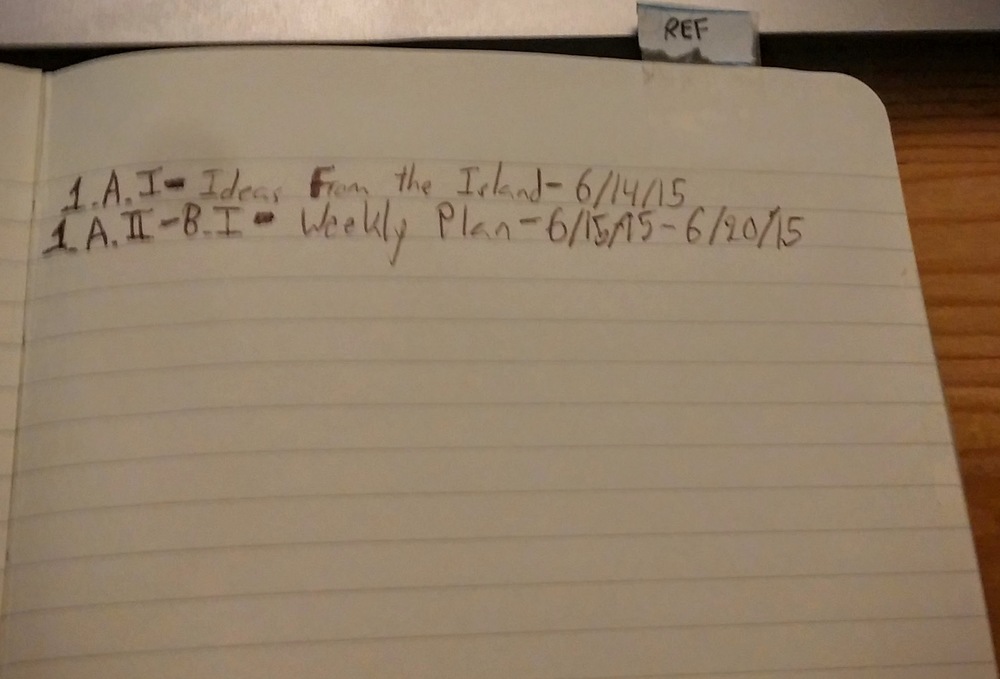 REF
1.A.I- Ideas From the Island- 6/14/15
1.A.II-B.I- Weekly Plan-6/15/15-6/20/15